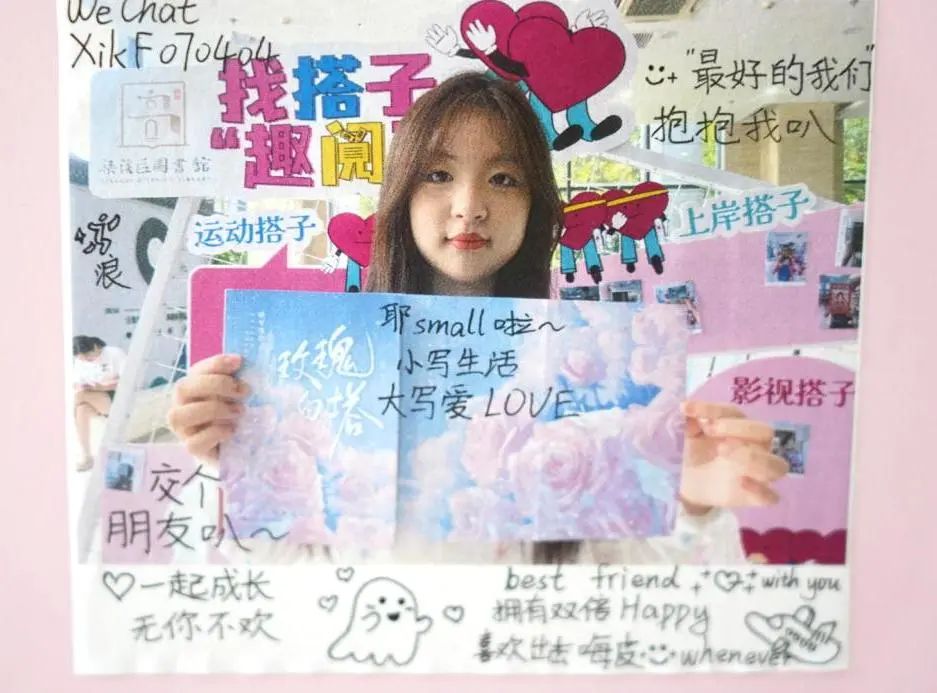 WeChat
XikF070404
找搭子
"趣阅
梁溪区圖書館
"最好的我们"
抱抱我叭
运动搭子
上岸搭子
浪
耶small啦~
小写生活
大写爱LOVE
玫瑰
白塔
影视搭子
交个
朋友叭~
一起成长
无你不欢
best friend with you
拥有双倍Happy
喜欢出去嗨皮whenever